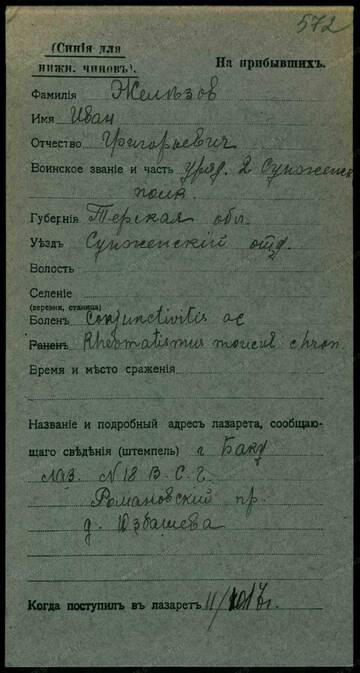 572
(Синія для
нижн. чиновъ).
На прибывшихъ.
Фамилія Желѣзов
Имя Иван
Отчество Григорьевич
Воинское званіе и часть уряд. 2 Сунженск
полк.
Губернія Терская обл.
Уѣздъ Сунженскій отд.
Волость
Селеніе
(деревня, станица)
Боленъ Conjunctivitis ac
Раненъ Rheumatismus muscul chron.
Время и мѣсто сраженія
Названіе и подробный адресъ лазарета, сообщаю-
щаго свѣдѣнія (штемпель) г Баку
лаз. N 18 В. С. Г.
Романовскій пр.
д. Юзбашева
Когда поступилъ въ лазаретъ